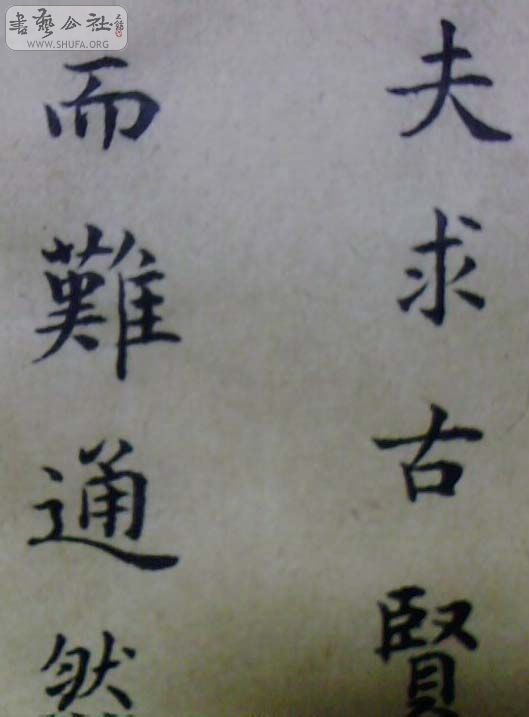 夫求古賢
而難通然
書藝公社
WWW.SHUFA.ORG